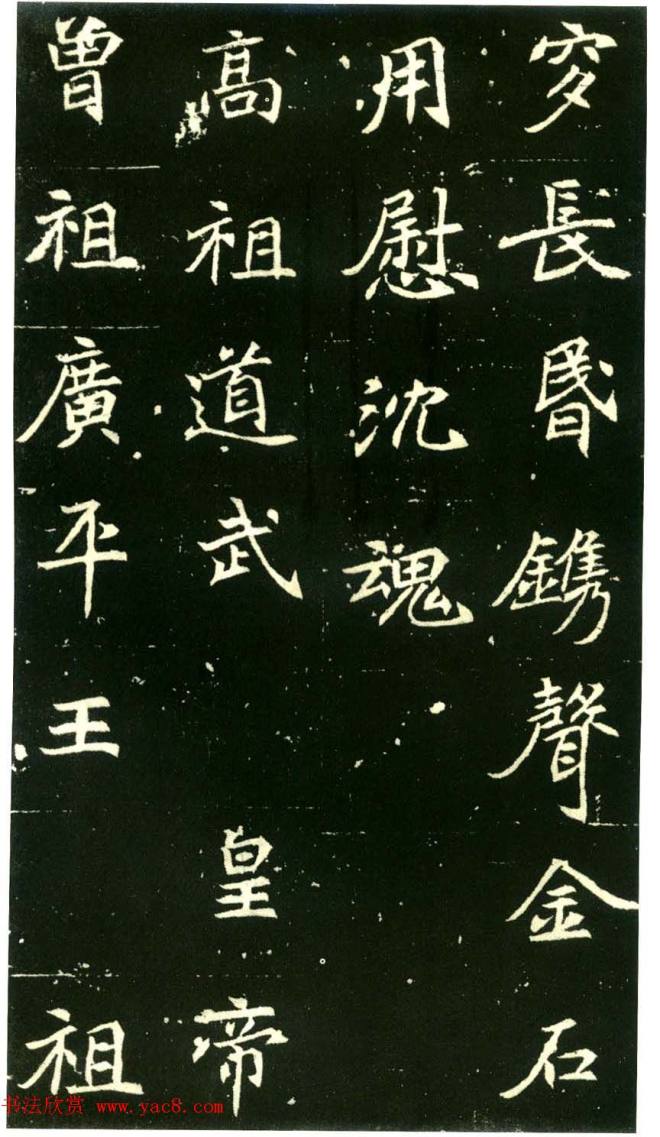 穸長昬鐫聲金石
用慰沈魂
高祖道武 皇帝
曾祖廣平王 祖
书法欣赏 www.yac8.com